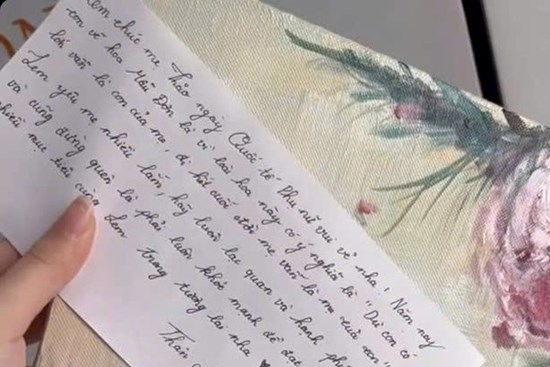 Lem chúc mẹ Thảo ngày Quốc tế Phụ nữ vui vẻ nha! Năm nay
con vẽ hoa Mẫu Đơn là vì loài hoa này có ý nghĩa là "Dù con có
lớn vẫn là con của mẹ, đi hết cuộc đời mẹ vẫn là mẹ của con"
Lem yêu mẹ nhiều lắm, hãy luôn lạc quan và hạnh
và cũng đừng quên là phải luôn khoẻ mạnh để đạt
nhiều mục tiêu cùng Lem trong tương lai nha
Thân